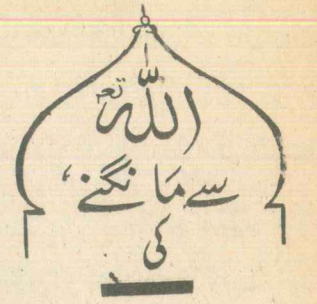 اللہ تعالیٰ
سے مانگنے،
کی